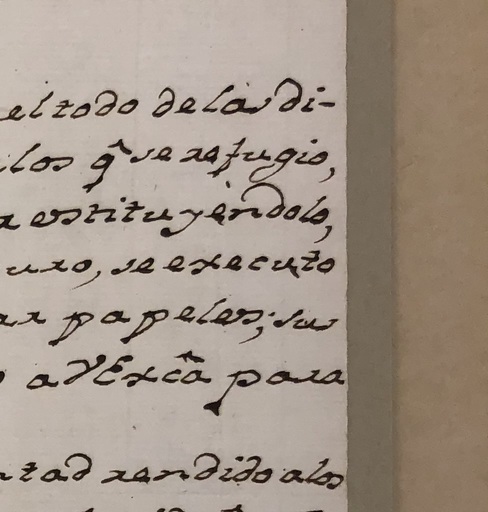 el todo de las di-
los q.ᵉ se refugio,
restituyèndolo,
uro, se executo
ar papeles; sus
a VExcâ para
tad rendido a los